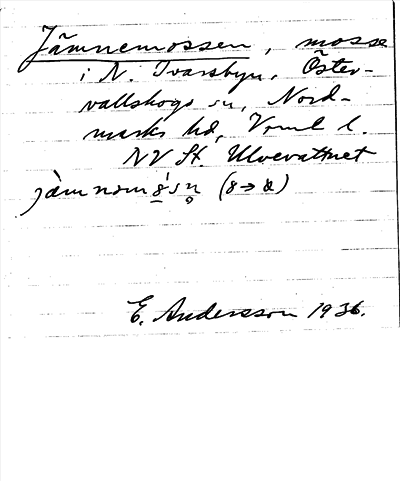 Jämnemossen, mosse
i N. Ivarsbyn, Öster-
vallskogs sn, Nord-
marks hd, Vrml l.
NV St. Ulvevattnet
E. Andersson 1936.